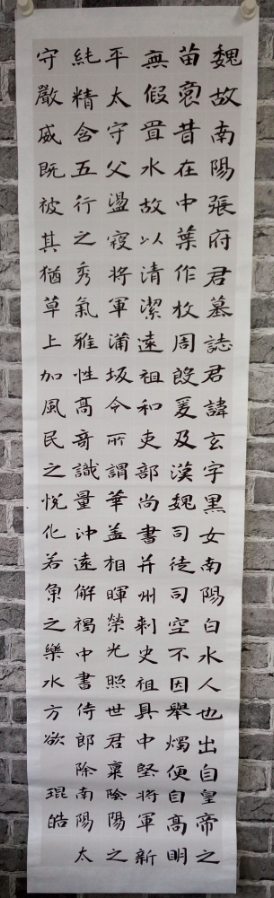 魏故南陽張府君墓誌君諱玄字黑女南陽白水人也出自皇帝之
苗裔昔在中葉作牧周殷爰及漢魏司徒司空不因舉燭便自高明
無假置水故以清潔遠祖和吏部尚書并州刺史祖具中堅將軍新
平太守父盪寇將軍蒲坂令所謂華蓋相暉榮光照世君稟陰陽之
純精含五行之秀氣雅性高奇識量沖遠解褐中書侍郎除南陽太
守嚴威既被其猶草上加風民之悅化若魚之樂水方欲 琨皓